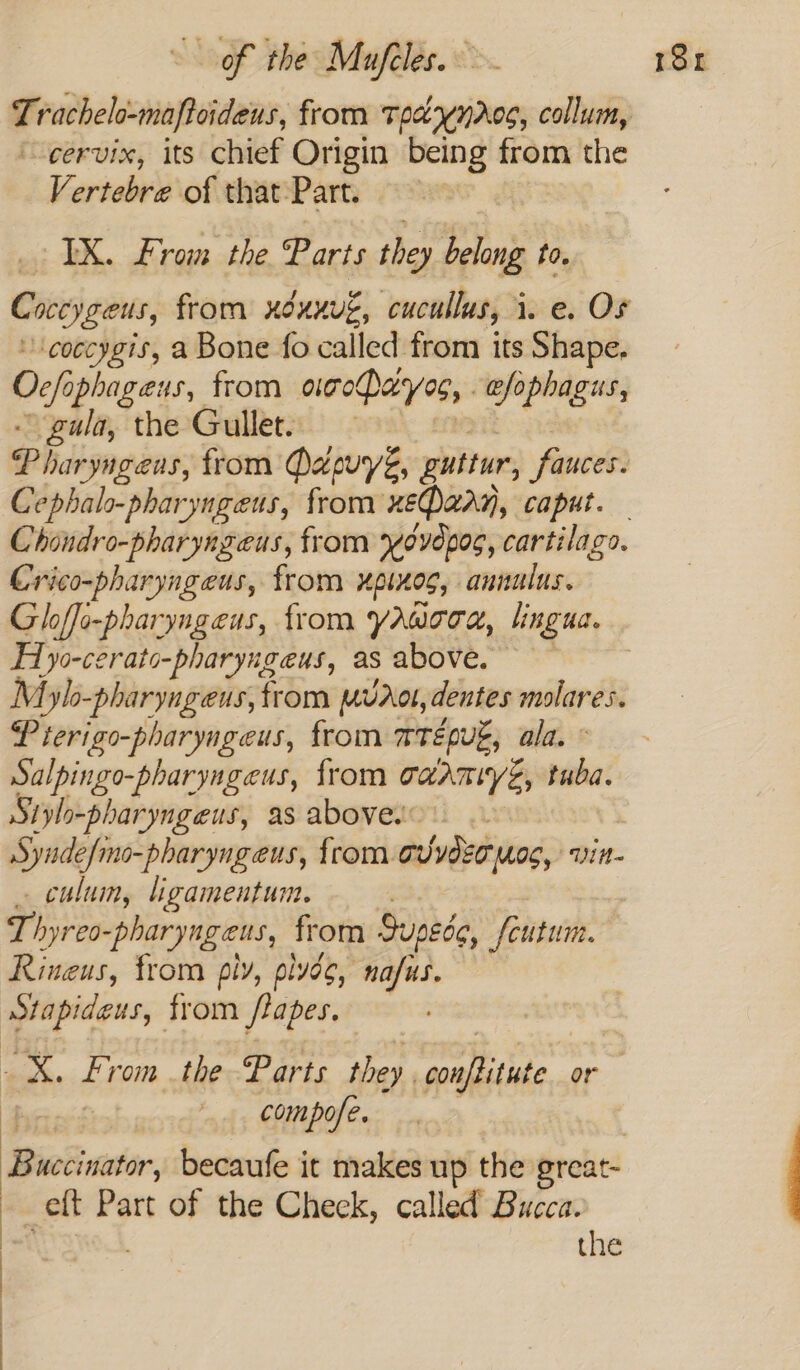 of the Muſcles. 181
Trachelo-maſtoidæus, from τράχηλος, collum,
cervix, its chief Origin being from the
Vertebræ of that Part.
IX. From the Parts they belong to.
Coccygæus, from κόκκυξ, cucullus, i. e. Os
coccygis, a Bone ſo called from its Shape.
Oeſophagæus, from οισοφάγος, œſophagus,
gula, the Gullet.
Pharyngæus, from φάρυγξ, guttur, fauces.
Cephalo-pharyngæus, from κεφαλὴ, caput.
Chondro-pharyngæus, from χόνδρος, cartilago.
Crico-pharyngæus, from κρικος, annulus.
Gloſſo-pharyngæus, from γλῶσσα, lingua.
Hyo-cerato-pharyngæus, as above.
Mylo-pharyngæus, from μύλοι, dentes molares.
Pterigo-pharyngæus, from πτέρυξ, ala.
Salpingo-pharyngæus, from σάλπιγξ, tuba.
Stylo-pharyngæus, as above.
Syndeſmo-pharyngæus, from σύνδεσμος, vin-
culum, ligamentum.
Thyreo-pharyngæus, from θυρεός, ſcutum.
Rinæus, from ρίν, ρινός, naſus.
Stapidæus, from ſtapes.
X. From the Parts they conſtitute or
compoſe.
Buccinator, becauſe it makes up the great-
eſt Part of the Cheek, called Bucca.
the